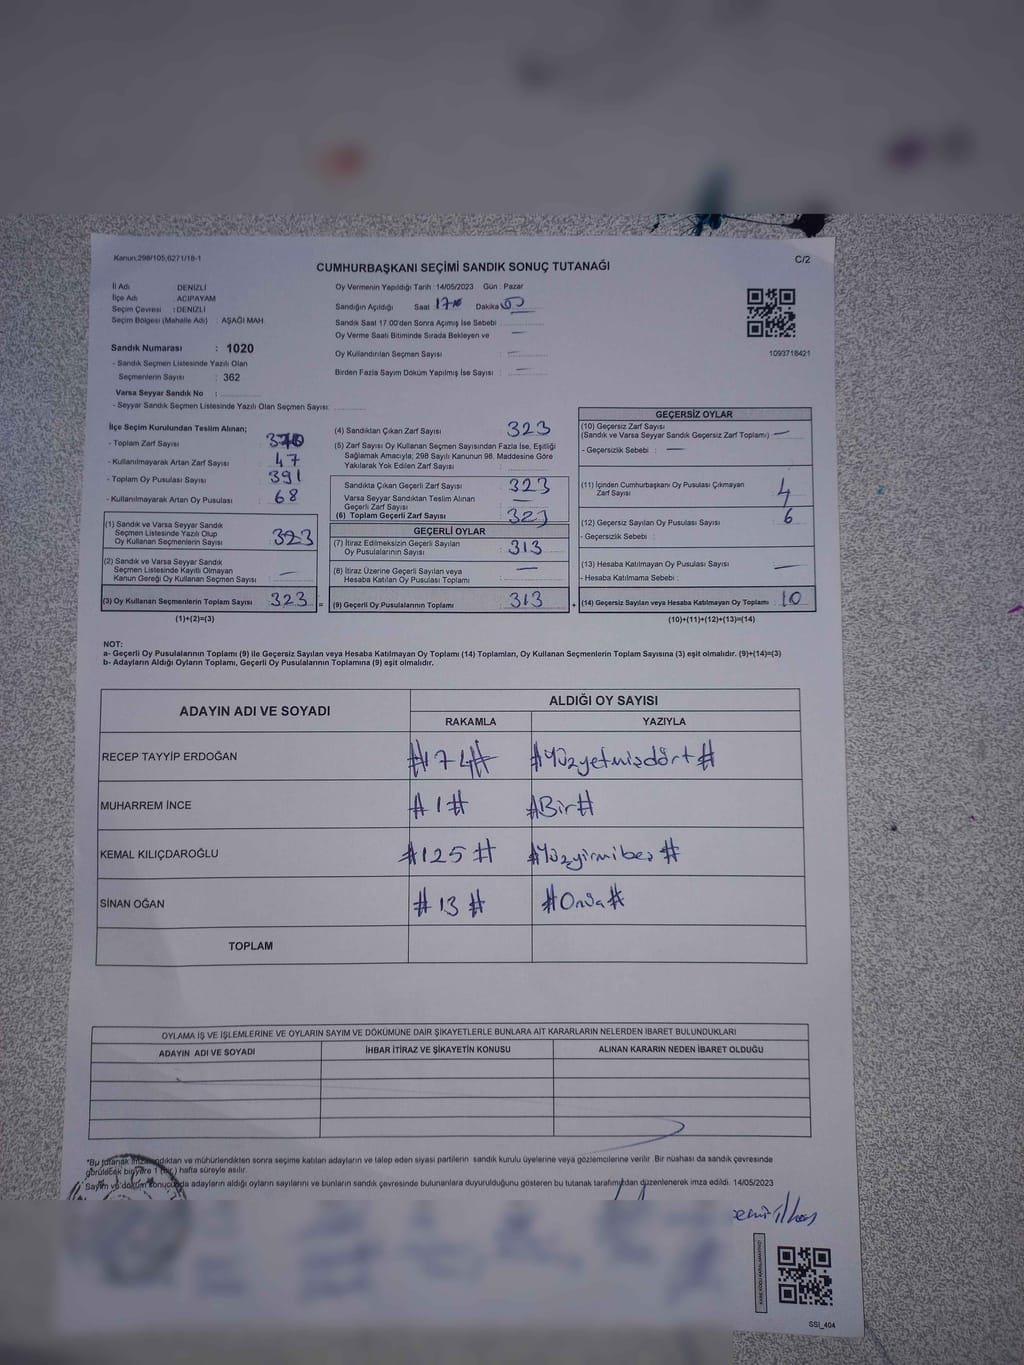 Kanun:298/105;6271/18-1
C/2
CUMHURBAŞKANI SEÇİMİ SANDIK SONUÇ TUTANAĞI
İl Adı : DENİZLİ
İlçe Adı : ACIPAYAM
Seçim Çevresi : DENİZLİ
Seçim Bölgesi (Mahalle Adı) : AŞAĞI MAH.
Sandık Numarası : 1020
- Sandık Seçmen Listesinde Yazılı Olan
Seçmenlerin Sayısı : 362
Varsa Seyyar Sandık No :
- Seyyar Sandık Seçmen Listesinde Yazılı Olan Seçmen Sayısı:
Oy Vermenin Yapıldığı Tarih :14/05/2023 Gün : Pazar
Sandığın Açıldığı Saat Dakika
Sandık Saat 17.00'den Sonra Açımış İse Sebebi :
Oy Verme Saati Bitiminde Sırada Bekleyen ve
Oy Kullandırılan Seçmen Sayısı :
Birden Fazla Sayım Döküm Yapılmış İse Sayısı :
1093718421
İlçe Seçim Kurulundan Teslim Alınan;
- Toplam Zarf Sayısı :
- Kullanılmayarak Artan Zarf Sayısı : 47
- Toplam Oy Pusulası Sayısı : 391
- Kullanılmayarak Artan Oy Pusulası : 68
(1) Sandık ve Varsa Seyyar Sandık
Seçmen Listesinde Yazılı Olup
Oy Kullanan Seçmenlerin Sayısı : 323
(2) Sandık ve Varsa Seyyar Sandık
Seçmen Listesinde Kayıtlı Olmayan
Kanun Gereği Oy Kullanan Seçmen Sayısı : —
(3) Oy Kullanan Seçmenlerin Toplam Sayısı : 323 =
(1)+(2)=(3)
(4) Sandıktan Çıkan Zarf Sayısı : 323
(5) Zarf Sayısı Oy Kullanan Seçmen Sayısından Fazla İse, Eşitliği
Sağlamak Amacıyla; 298 Sayılı Kanunun 98. Maddesine Göre
Yakılarak Yok Edilen Zarf Sayısı :
Sandıkta Çıkan Geçerli Zarf Sayısı : 323
Varsa Seyyar Sandıktan Teslim Alınan
Geçerli Zarf Sayısı : —
(6) Toplam Geçerli Zarf Sayısı : 323
GEÇERLİ OYLAR
(7) İtiraz Edilmeksizin Geçerli Sayılan
Oy Pusulalarının Sayısı : 313
(8) İtiraz Üzerine Geçerli Sayılan veya
Hesaba Katılan Oy Pusulası Toplamı : —
(9) Geçerli Oy Pusulalarının Toplamı : 313 +
GEÇERSİZ OYLAR
(10) Geçersiz Zarf Sayısı
(Sandık ve Varsa Seyyar Sandık Geçersiz Zarf Toplamı) : —
- Geçersizlik Sebebi : —
(11) İçinden Cumhurbaşkanı Oy Pusulası Çıkmayan
Zarf Sayısı : 4
(12) Geçersiz Sayılan Oy Pusulası Sayısı : 6
- Geçersizlik Sebebi :
(13) Hesaba Katılmayan Oy Pusulası Sayısı : —
- Hesaba Katılmama Sebebi :
(14) Geçersiz Sayılan veya Hesaba Katılmayan Oy Toplamı : 10
(10)+(11)+(12)+(13)=(14)
NOT:
a- Geçerli Oy Pusulalarının Toplamı (9) ile Geçersiz Sayılan veya Hesaba Katılmayan Oy Toplamı (14) Toplamları, Oy Kullanan Seçmenlerin Toplam Sayısına (3) eşit olmalıdır. (9)+(14)=(3)
b- Adayların Aldığı Oyların Toplamı, Geçerli Oy Pusulalarının Toplamına (9) eşit olmalıdır.
ADAYIN ADI VE SOYADI
ALDIĞI OY SAYISI
RAKAMLA YAZIYLA
RECEP TAYYİP ERDOĞAN #174# #Yüzyetmişdört#
MUHARREM İNCE #1# #Bir#
KEMAL KILIÇDAROĞLU #125# #Yüzyirmibeş#
SİNAN OĞAN #13# #Onüç#
TOPLAM
OYLAMA İŞ VE İŞLEMLERİNE VE OYLARIN SAYIM VE DÖKÜMÜNE DAİR ŞİKAYETLERLE BUNLARA AİT KARARLARIN NELERDEN İBARET BULUNDUKLARI
ADAYIN ADI VE SOYADI İHBAR İTİRAZ VE ŞİKAYETİN KONUSU ALINAN KARARIN NEDEN İBARET OLDUĞU
*Bu tutanak imzalandıktan ve mühürlendikten sonra seçime katılan adayların ve talep eden siyasi partilerin sandık kurulu üyelerine veya gözlemcilerine verilir. Bir nüshası da sandık çevresinde
görülecek bir yere 1 (bir) hafta süreyle asılır.
Sayım ve döküm sonucunda adayların aldığı oyların sayılarını ve bunların sandık çevresinde bulunanlara duyurulduğunu gösteren bu tutanak tarafımızdan düzenlenerek imza edildi. 14/05/2023
SSİ_404